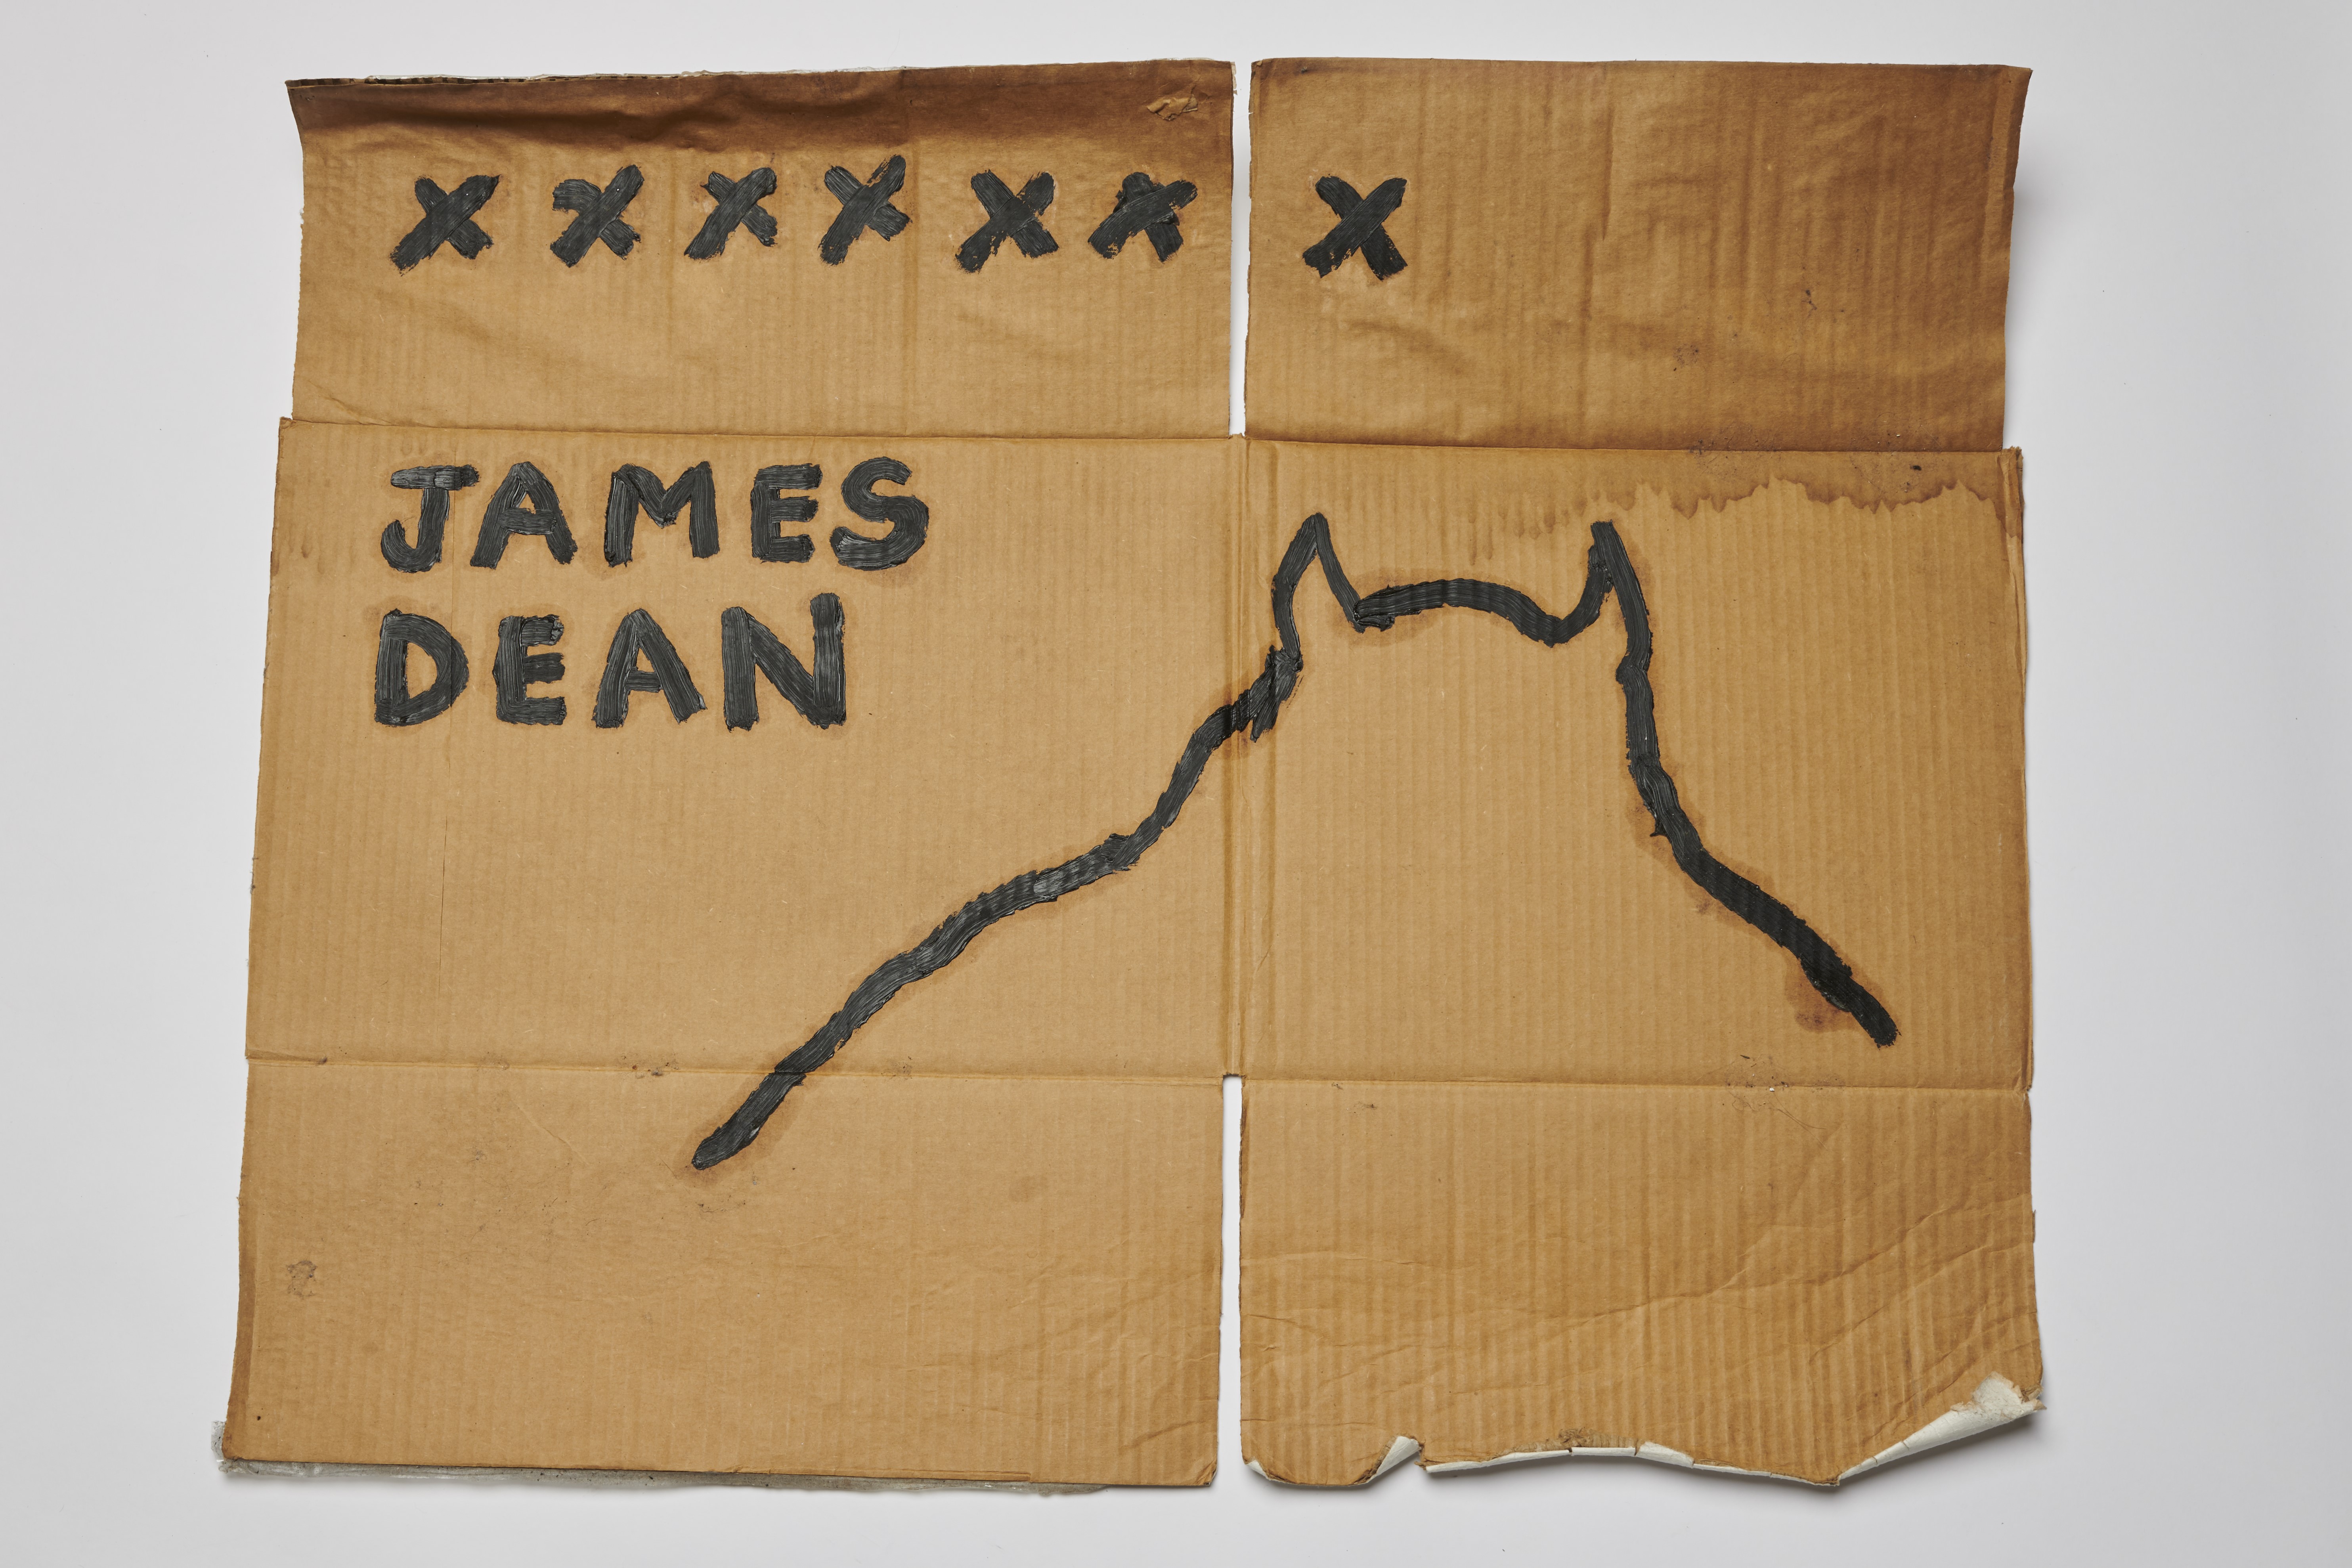 X X X X X X X
JAMES
DEAN